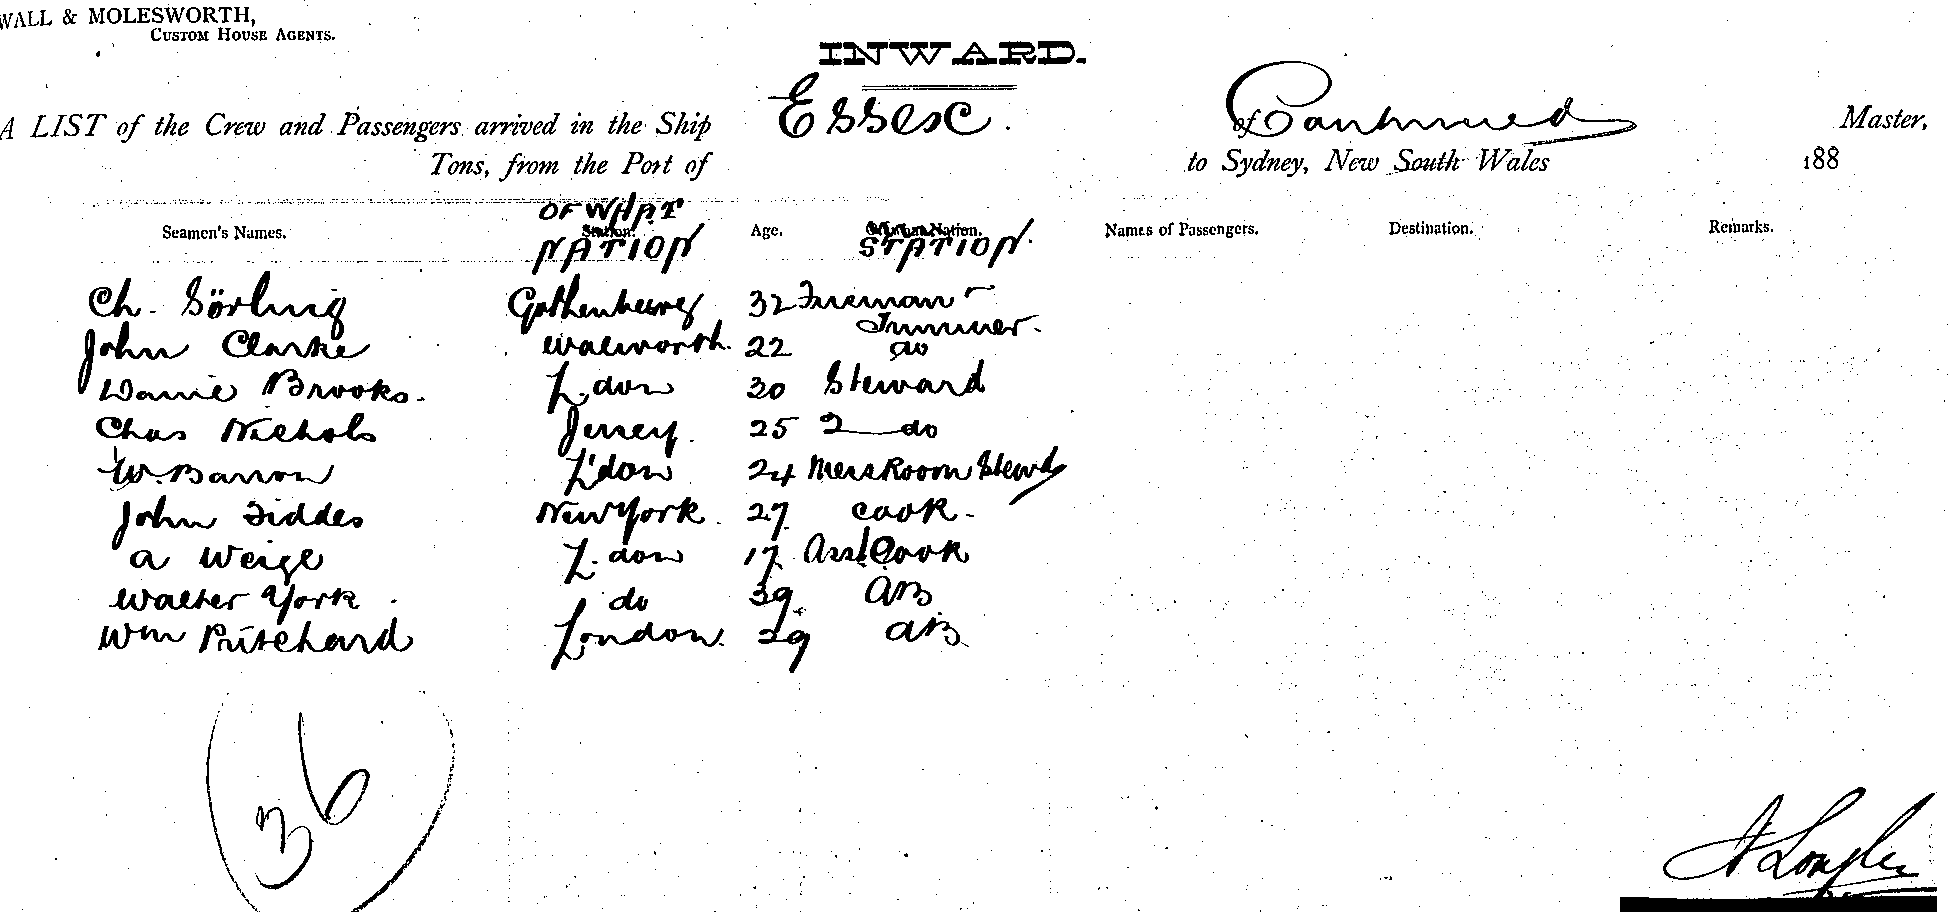 WALL & MOLESWORTH,
CUSTOM HOUSE AGENTS.
INWARD.
A LIST of the Crew and Passengers arrived in the Ship Essex. of Continued Master,
Tons, from the Port of to Sydney, New South Wales 188
Seamen's Names. OF WHAT NATION Age. STATION. Names of Passengers. Destination. Remarks.
Ch. Sörling Gothenburg 32 Fireman &
Trimmer.
John Clarke Walworth. 22 do
Brooks. L.don 30 Steward
Chas Nichols Jersey. 25 2 do
W. Barron L'don 24 Mess Room Stewd
John Fiddes New York. 27 Cook.
A Weige L.don 17 Asst Cook
Walter York. do 39. AB
Wm Pritchard London. 29 AB.
36